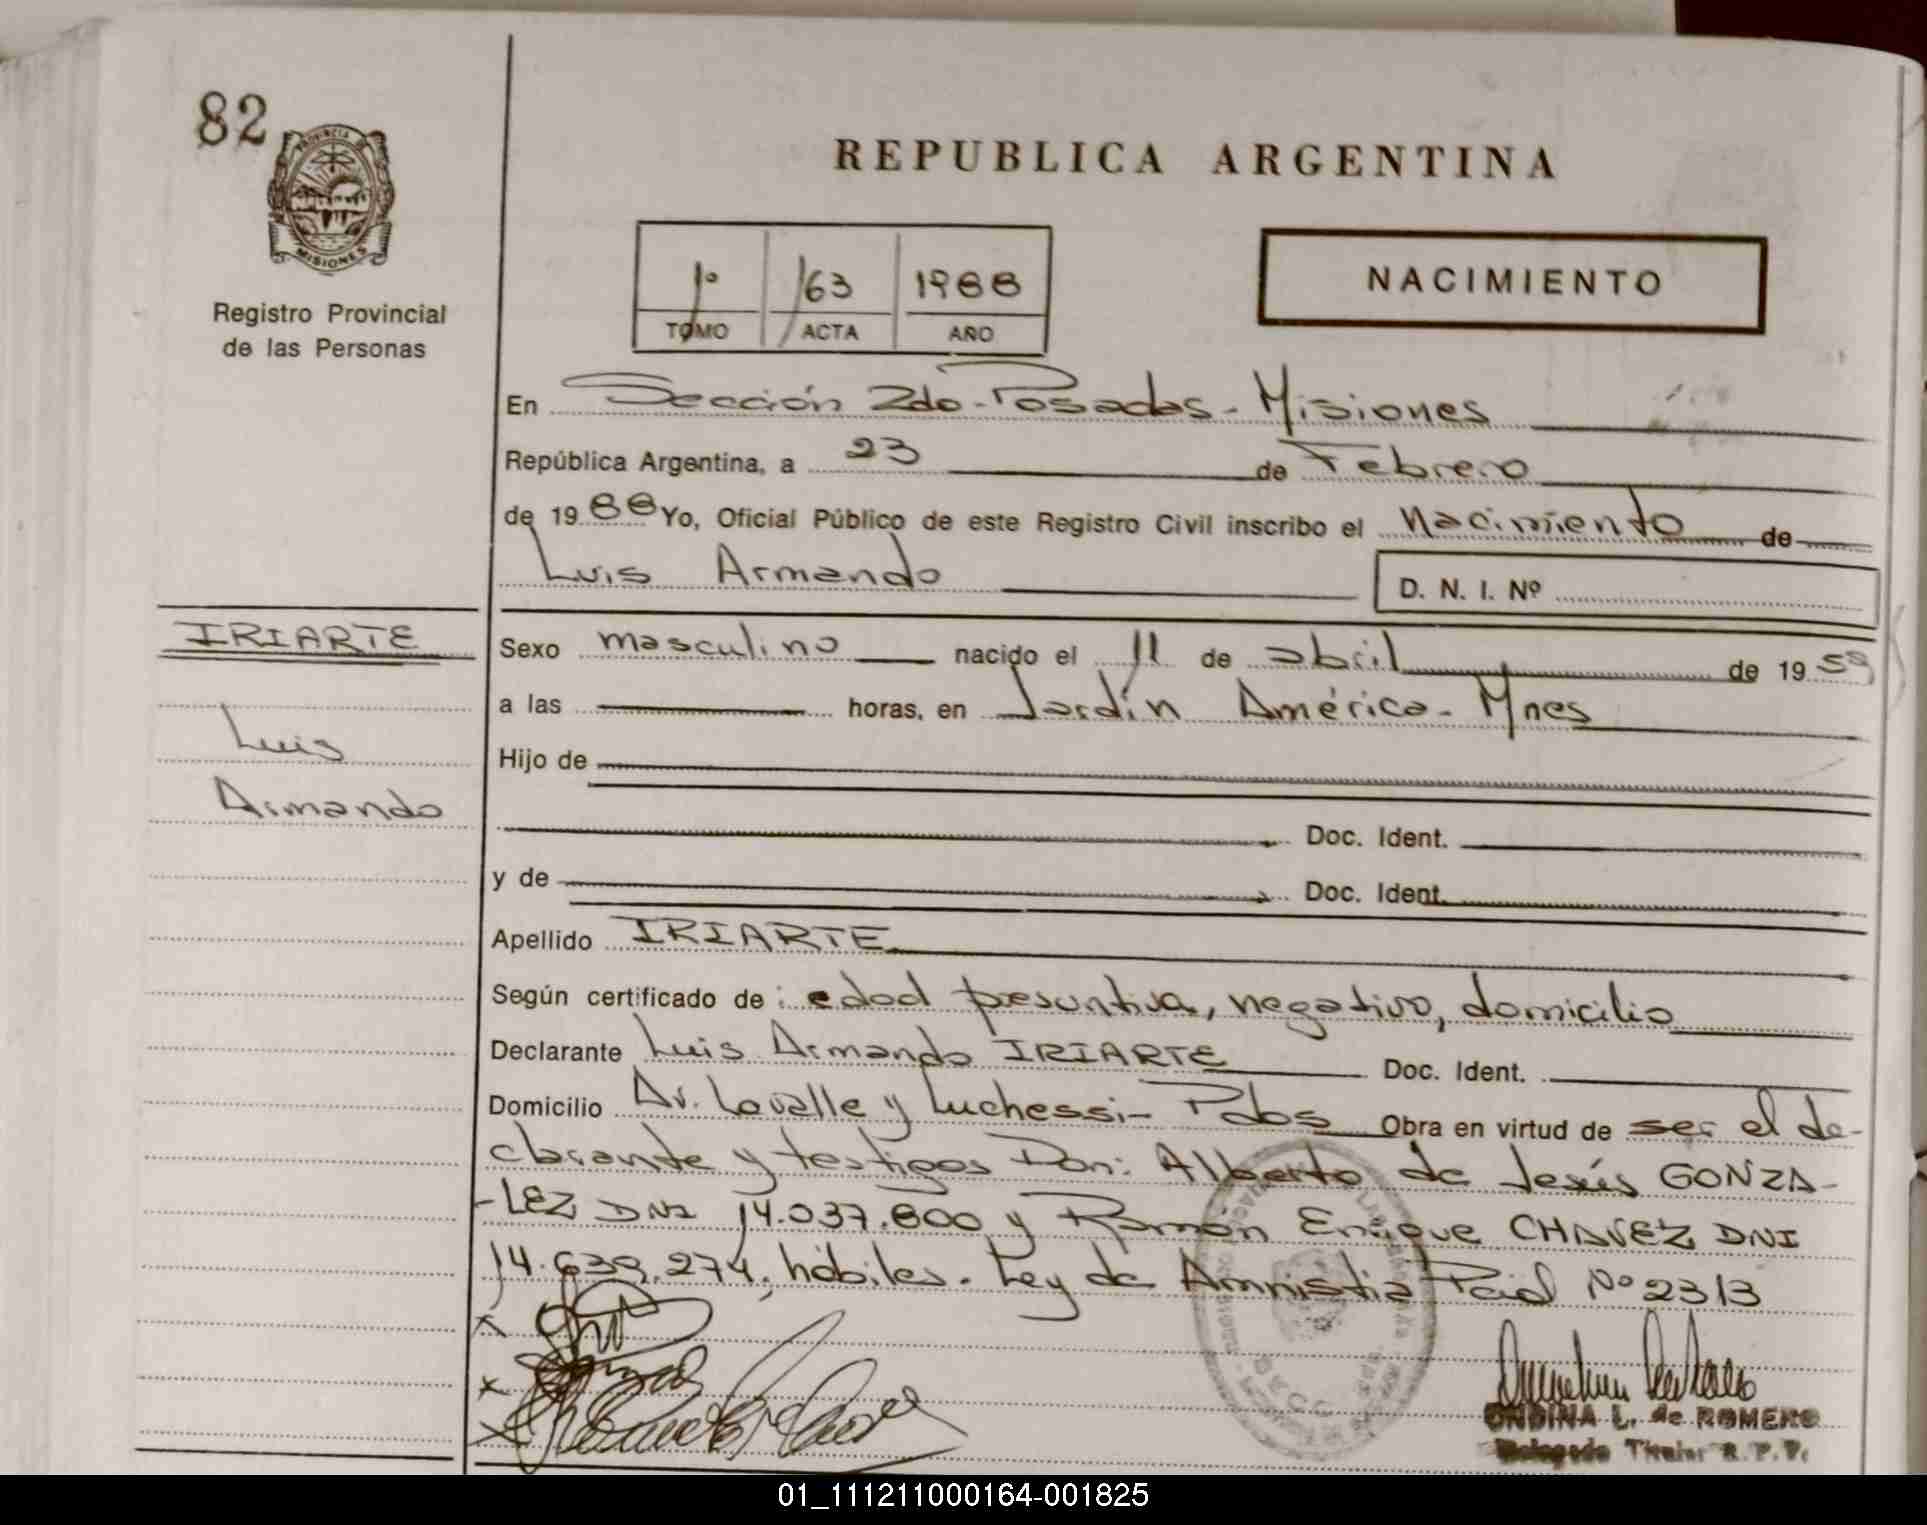 82
PROVINCIA DE
MISIONES
Registro Provincial
de las Personas
REPUBLICA ARGENTINA
1º 163 1988
TOMO ACTA AÑO
NACIMIENTO
En Sección 2do - Posadas - Misiones
República Argentina, a 23 de Febrero
de 1988 Yo, Oficial Público de este Registro Civil inscribo el Nacimiento de
Luis Armando
D. N. I. Nº
IRIARTE
Luis
Armando
Sexo masculino nacido el 11 de abril de 1959
a las horas, en Jardín América - Mnes
Hijo de
Doc. Ident.
y de Doc. Ident.
Apellido IRIARTE
Según certificado de : edad presuntiva, negativo, domicilio
Declarante Luis Armando IRIARTE Doc. Ident.
Domicilio Av. Lavalle y Luchessi - Pdas Obra en virtud de ser el de-
clarante y testigos Don: Alberto de Jesús GONZA-
-LEZ DNI 14.037.800 y Ramón Enrique CHAVEZ DNI
14.639.274, hábiles. Ley de Amnistia Pcial Nº 2313
ONDINA L. de ROMERO
Delegada Titular R. P. P.
01_111211000164-001825